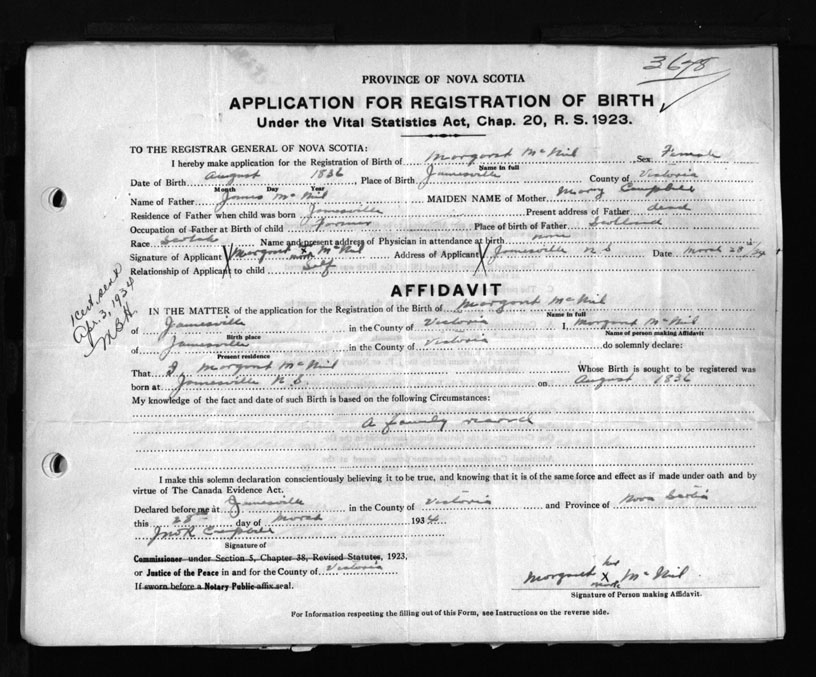 3678
PROVINCE OF NOVA SCOTIA
APPLICATION FOR REGISTRATION OF BIRTH
Under the Vital Statistics Act, Chap. 20, R. S. 1923.
TO THE REGISTRAR GENERAL OF NOVA SCOTIA:
I hereby make application for the Registration of Birth of Margaret McNeil Sex Female
Name in full
Date of Birth August 1836 Place of Birth Jamesville County of Victoria
Month Day Year
Name of Father James McNeil MAIDEN NAME of Mother Mary Campbell
Residence of Father when child was born Jamesville Present address of Father dead
Occupation of Father at Birth of child Farmer Place of birth of Father Scotland
Race Scotch Name and present address of Physician in attendance at birth none
Signature of Applicant Margaret X McNeil Address of Applicant Jamesville N S Date March 28
mark
Relationship of Applicant to child Self
1 cert. sent
Apr. 3, 1934
M.B.H.
AFFIDAVIT
IN THE MATTER of the application for the Registration of the Birth of Margaret McNeil
Name in full
of Jamesville in the County of Victoria I, Margaret McNeil
Birth place Name of person making Affidavit
of Jamesville in the County of Victoria do solemnly declare:
Present residence
That I Margaret McNeil Whose Birth is sought to be registered was
born at Jamesville N.S. on August 1836
My knowledge of the fact and date of such Birth is based on the following Circumstances:
A family record
I make this solemn declaration conscientiously believing it to be true, and knowing that it is of the same force and effect as if made under oath and by
virtue of The Canada Evidence Act.
Declared before me at Jamesville in the County of Victoria and Province of Nova Scotia
this 28th day of March 1934
Campbell
Signature of
Commissioner under Section 5, Chapter 38, Revised Statutes, 1923,
or Justice of the Peace in and for the County of Victoria
If sworn before a Notary Public affix seal.
her
Margaret X McNeil
mark
Signature of Person making Affidavit.
For Information respecting the filling out of this Form, see Instructions on the reverse side.